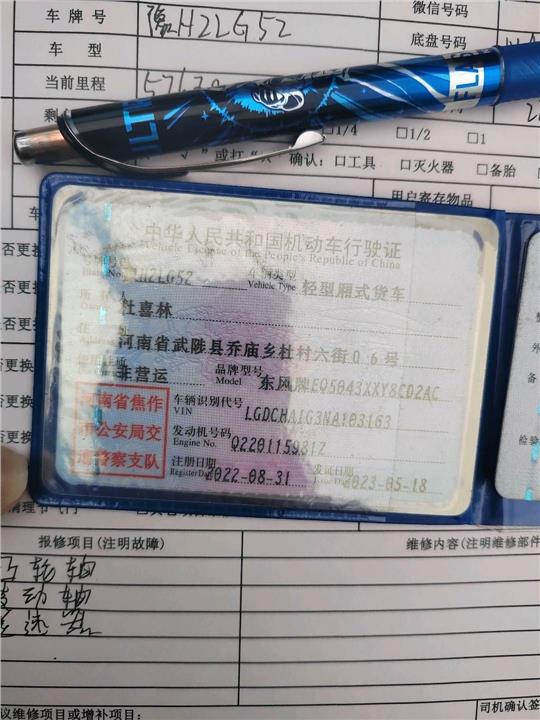 车牌号 豫H2LG52 微信号码
车型 底盘号码
当前里程
□1/4 □1/2 □1
√ 或打 确认：□工具 □灭火器 □备胎
用户寄存物品
中华人民共和国机动车行驶证
Vehicle License of the People's Republic of China
H2LG52 车辆类型 Vehicle Type 轻型厢式货车
杜喜林
河南省武陟县乔庙乡杜村六街06号
非营运 品牌型号 Model 东风牌EQ5043XXY8CD2AC
河南省焦作
市公安局交
通警察支队
车辆识别代号
VIN LGDCHA1G3NA103163
发动机号码
Engine No. Q220115981Z
注册日期 Register Date 2022-08-31 发证日期 Issue Date 2023-05-18
否更换
否更换
否更换
否更换
否更换
否更换
检验
报修项目(注明故障) 维修内容(注明维修部件
轮轴
动轴
议维修项目或增补项目: 司机确认签